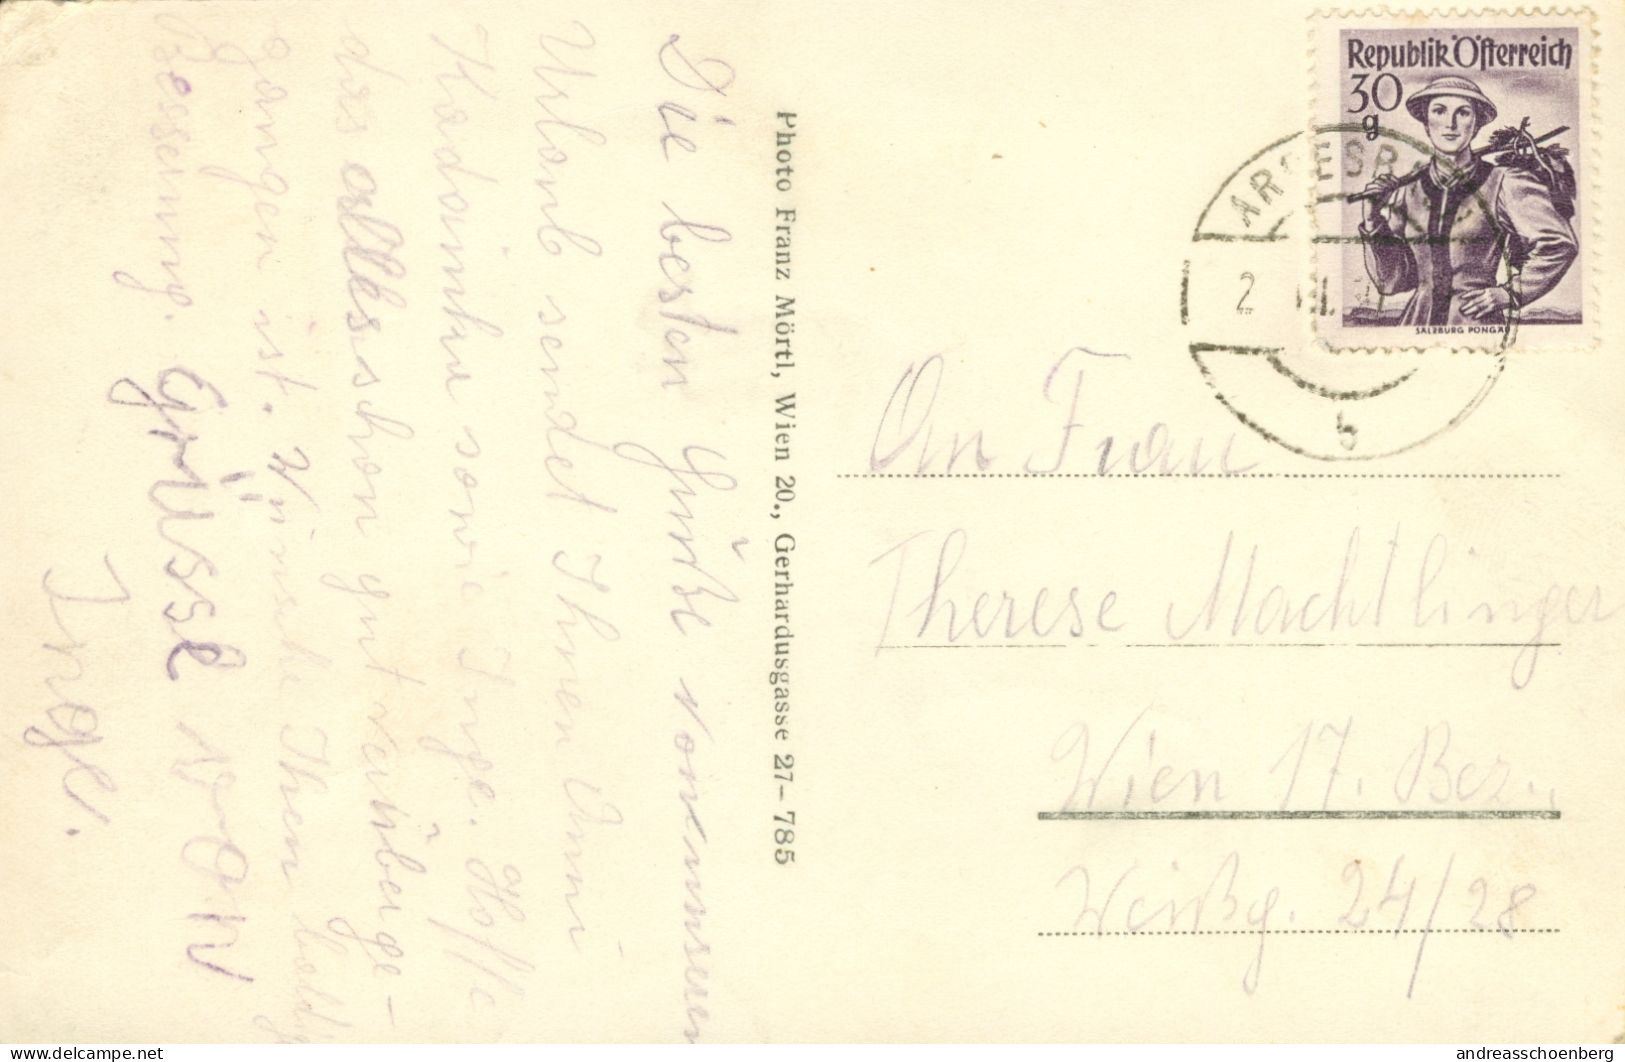 Die besten Grüße von unseren
Urlaub sendet Ihnen Anni
sowie Inge. Hoffe
das alles schon gut vorüberge-
gangen ist. Wünsche Ihnen baldige
Besserung. Grüsse von
Inge.
Photo Franz Mörtl, Wien 20., Gerhardusgasse 27–785
Republik Österreich
30
g
SALZBURG PONGAU
2
b
An Frau
Therese Machtlinger
Wien 17. Bez.,
Weißg. 24/28
andreasschoenberg